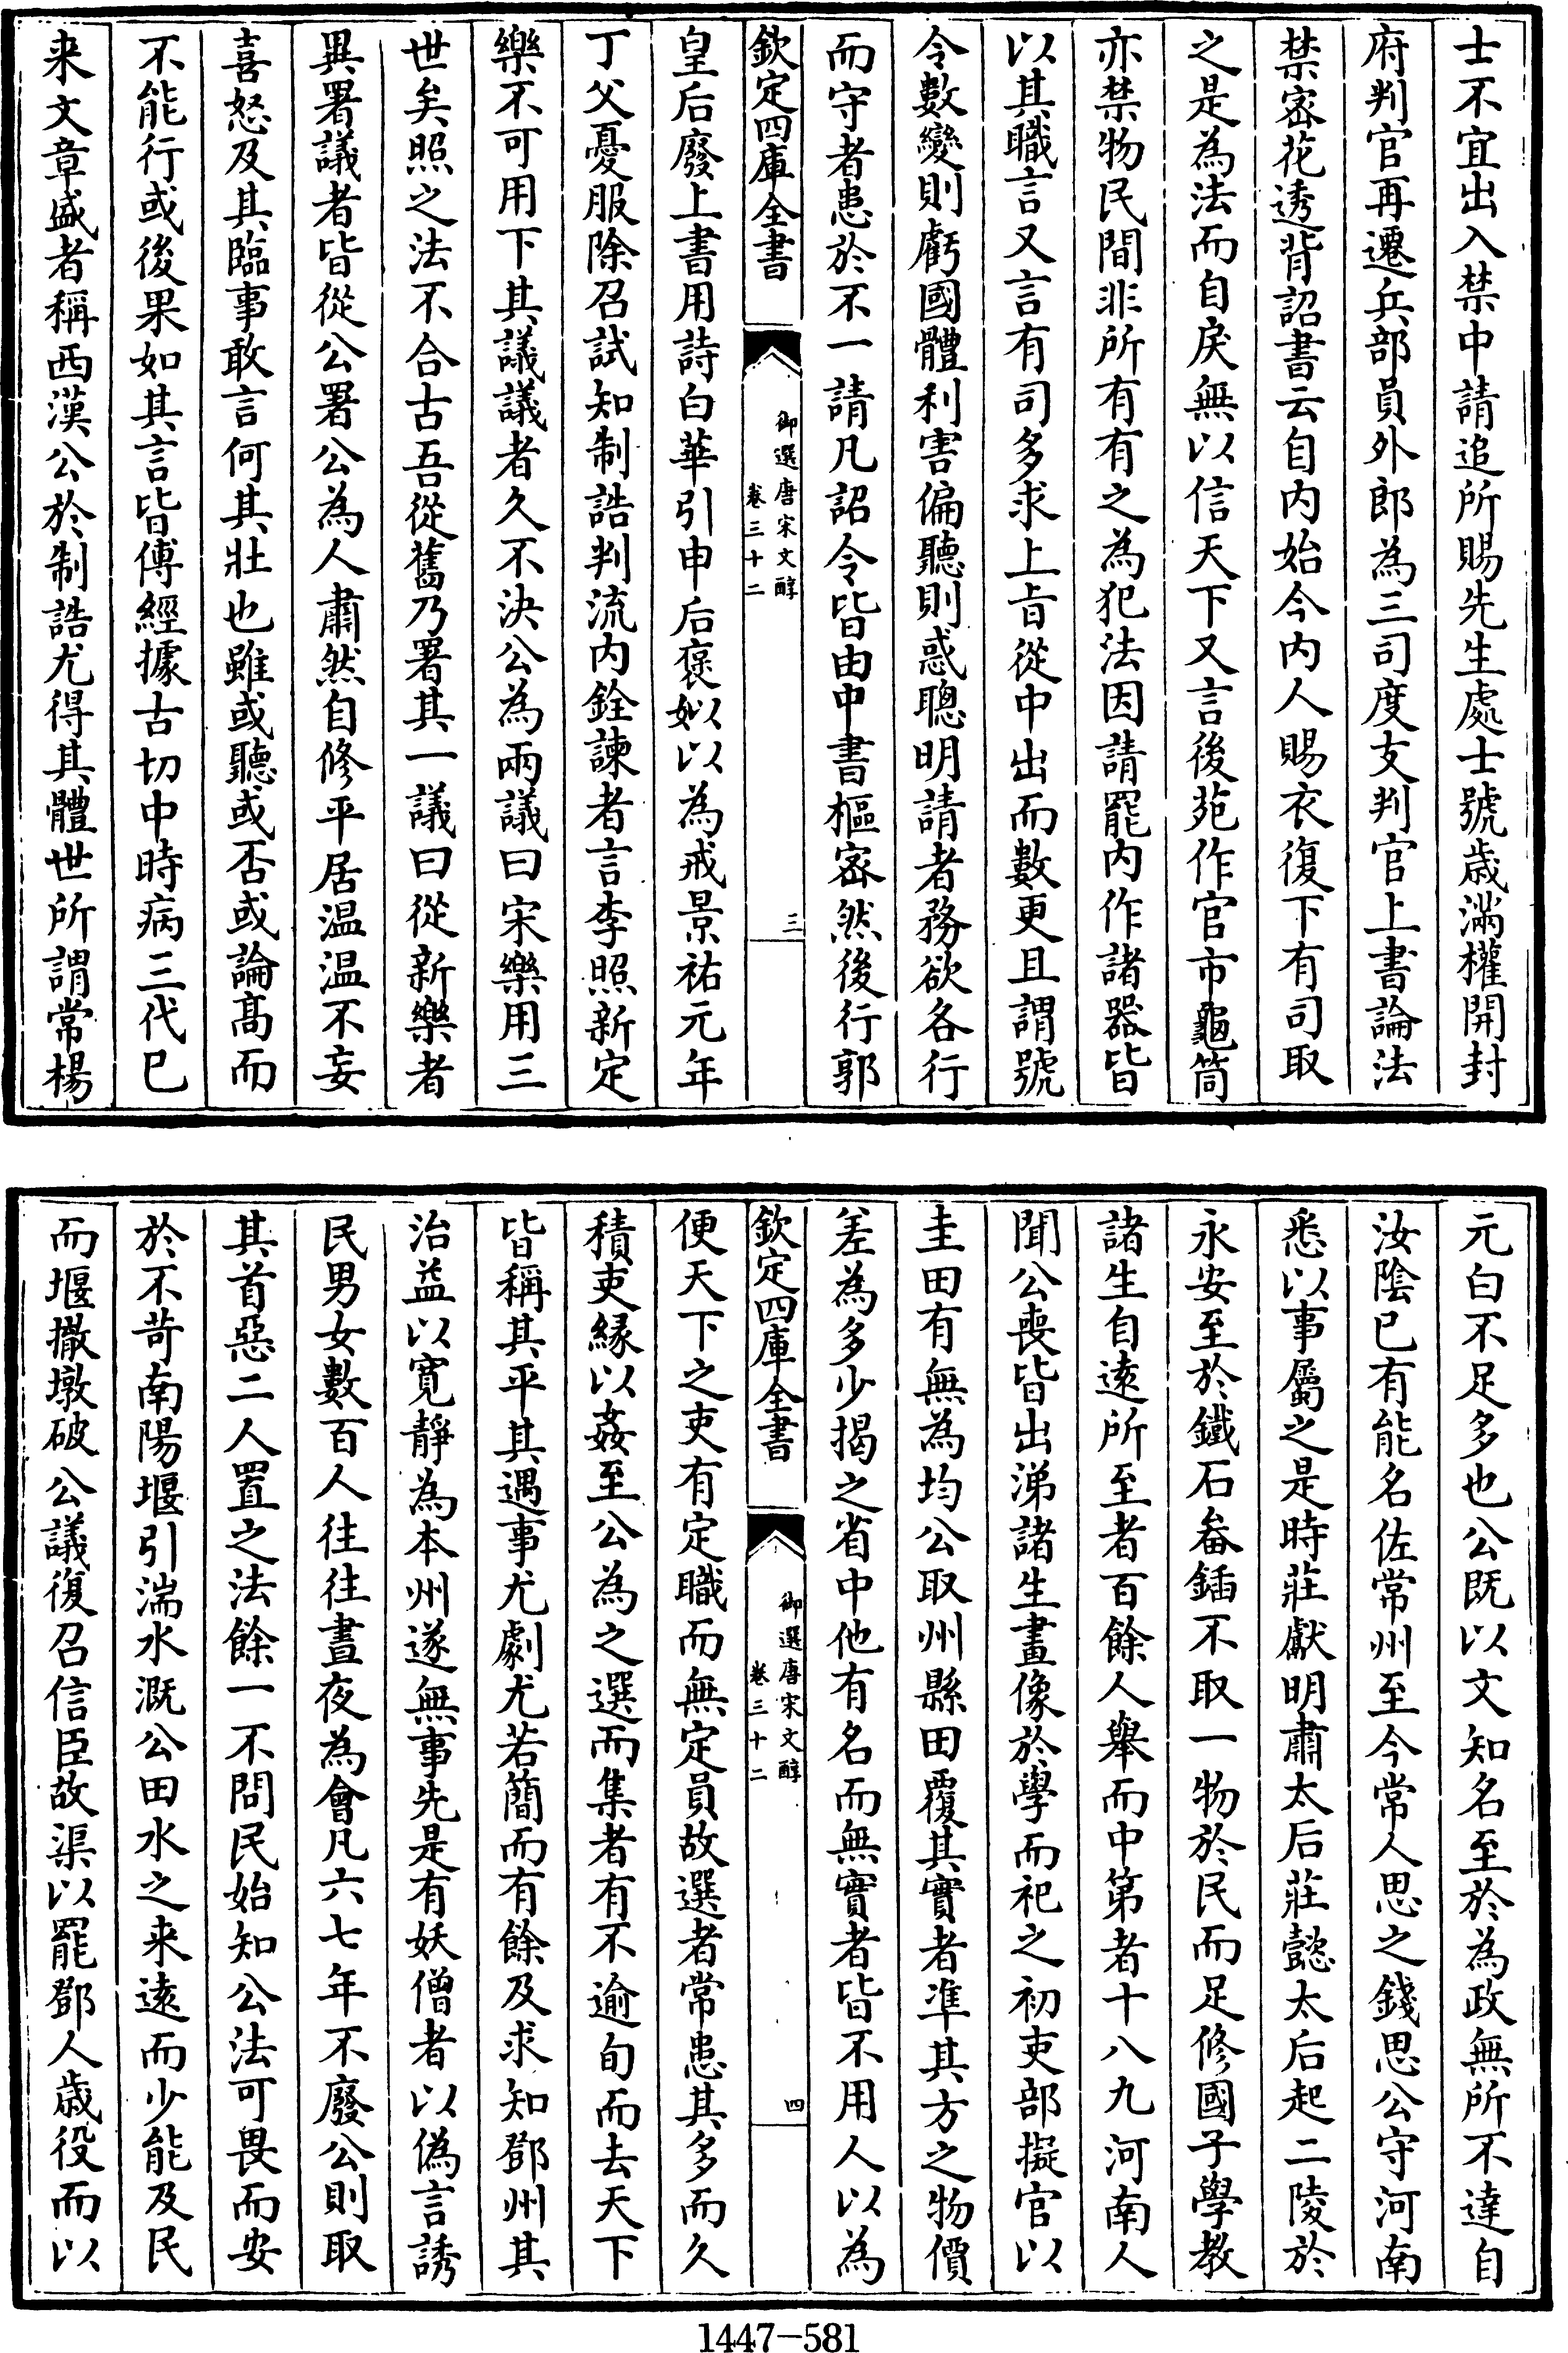 士不宜出入禁中請追所賜先生處士號歳滿權開封
府判官再遷兵部員外郎為三司度支判官上書論法
禁密花透背詔書云自内始今内人賜衣復下有司取
之是為法而自戾無以信天下又言後苑作官市龜筒
亦禁物民間非所有有之為犯法因請罷内作諸器皆
以其職言又言有司多求上㫖從中出而數更且謂號
令數變則虧國體利害偏聽則惑聰明請者務欲各行
而守者患於不一請凡詔令皆由中書樞密然後行郭
欽定四庫全書
御選唐宋文醇
卷三十二
三
皇后廢上書用詩白華引申后褒姒以為戒景祐元年
丁父憂服除召試知制誥判流内銓諫者言李照新定
樂不可用下其議議者久不決公為兩議曰宋樂用三
世矣照之法不合古吾從舊乃署其一議曰從新樂者
異署議者皆從公署公為人肅然自修平居温温不妄
喜怒及其臨事敢言何其壯也雖或聽或否或論髙而
不能行或後果如其言皆傅經據古切中時病三代已
来文章盛者稱西漢公於制誥尤得其體世所謂常楊
元白不足多也公既以文知名至於為政無所不達自
汝陰已有能名佐常州至今常人思之錢思公守河南
悉以事屬之是時莊獻明肅太后莊懿太后起二陵於
永安至於鐵石畚鍤不取一物於民而足修國子學教
諸生自遠所至者百餘人舉而中第者十八九河南人
聞公喪皆出涕諸生畫像於學而祀之初吏部擬官以
圭田有無為均公取州縣田覆其實者準其方之物價
差為多少揭之省中他有名而無實者皆不用人以為
欽定四庫全書
御選唐宋文醇
卷三十二
四
便天下之吏有定職而無定員故選者常患其多而久
積吏緣以姦至公為之選而集者有不逾旬而去天下
皆稱其平其遇事尤劇尤若簡而有餘及求知鄧州其
治益以寛靜為本州遂無事先是有妖僧者以偽言誘
民男女數百人往往晝夜為會凡六七年不廢公則取
其首惡二人置之法餘一不問民始知公法可畏而安
於不苛南陽堰引湍水溉公田水之来遠而少能及民
而堰撒墩破公議復召信臣故渠以罷鄧人歳役而以
1447-581